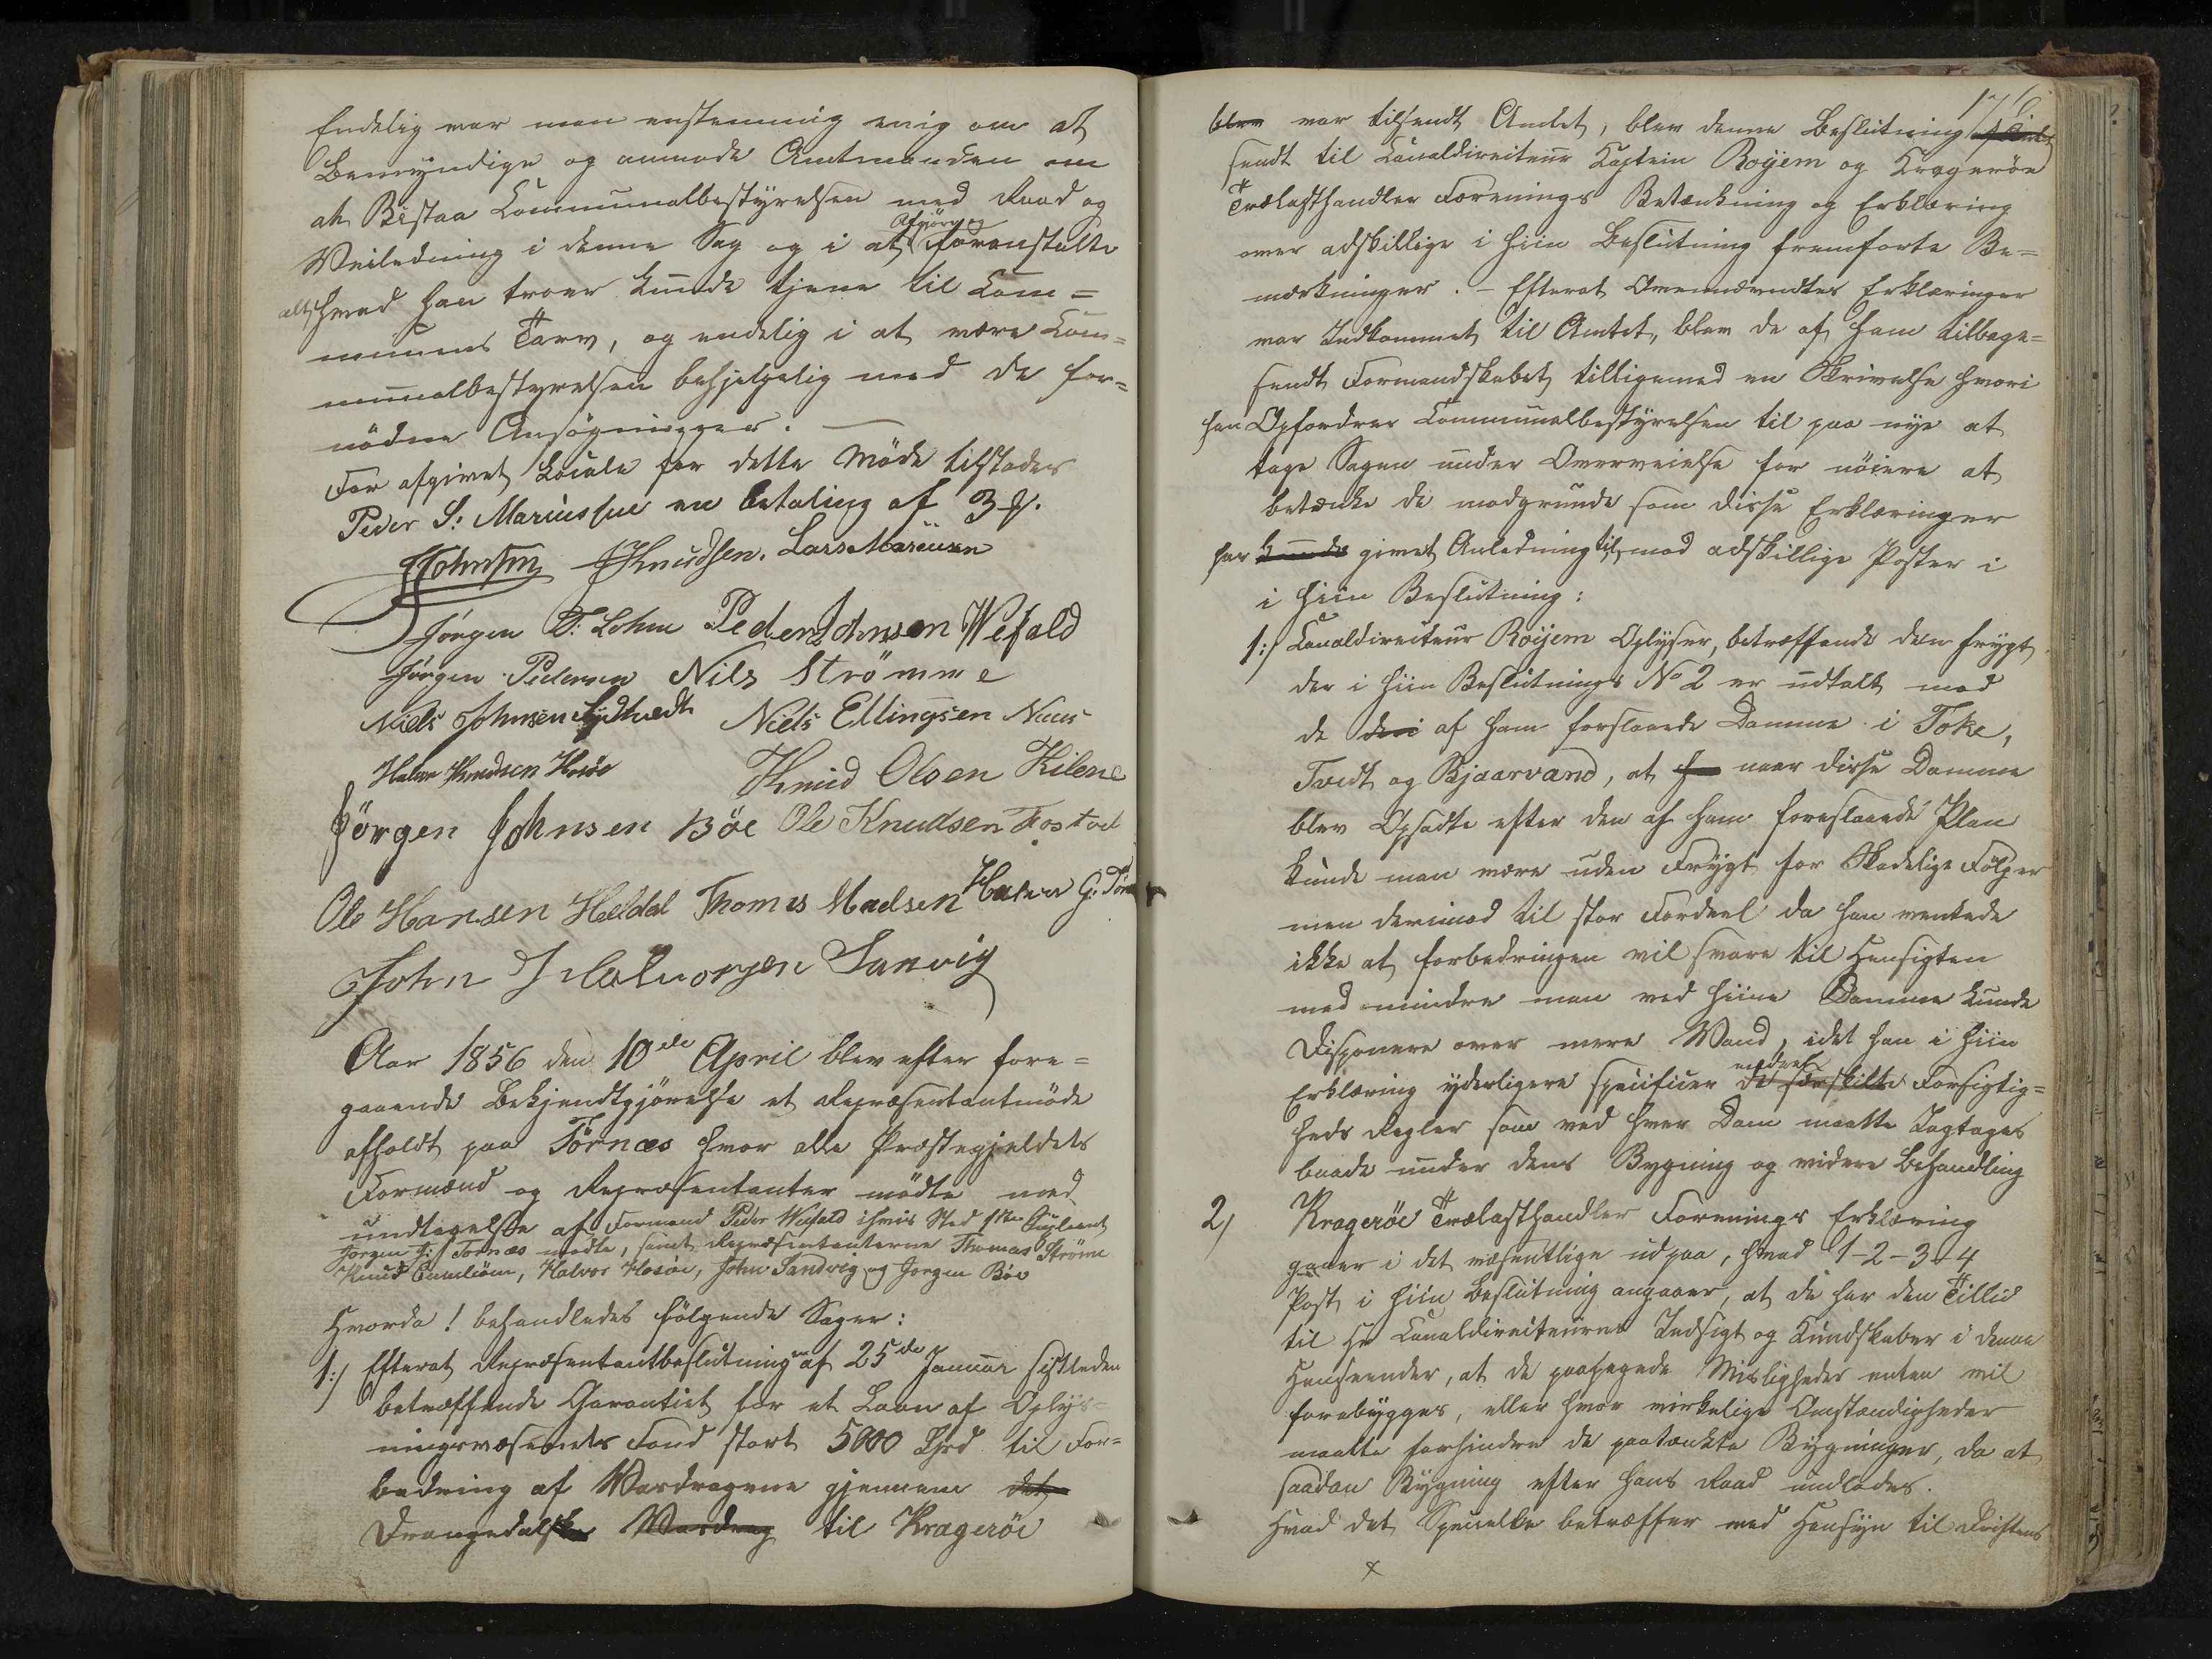 Endelig var man enstemmig enig om at
Bemyndige og anmode Amtmanden om
at Bistaa Communalbestyrelsen med Raad og
Veiledning i denne Sag og i at Afgjöre og foranstalte
alt hvad han troer kunde tjene til Com=
munens Tarv, og endelig i at være Com=
munalbestyrelsen behjelpelig med de for=
nödne Ansögninger. —
For afgivet Locale for dette Möde tilstodes
Peder S: Mariussen en betaling af 3
JJohnsen Knudsen. Lars Mariusen
Jörgen T: Lohne Peder Johnsen Wefald
Jörgen Pedersen Nils Strömme
Niels Johnsen Niels Ellingsen Naas
Halvor Knudsen Hosöe Knud Olsen Kilene
Jörgen Johnsen Böe Ole Knudsen Fostvet
Ole Hansen Heldal Thomas Madsen Halvor G: Törn
John J Halvorsen Sanvig
Aar 1856 den 10de April blev efter fore=
gaaende Bekjendtgjörelse et Repræsentantmöde
afholdt paa Törnæs hvor alle Præstegjeldets
Formænd og Repræsentanter mödte med
undtagelse af Formand Peder Wefald i hvis Sted 1ste Supleant
Jörgen J: Tornæs mödte, samt Repræsentanterne Thomas Strömme
Knud , Halvor Hosöe, John Sandvig og Jorgen Böe
Hvorda! behandledes fölgende Sager:
1:/ Efterat Repræsentantbeslutningen af 25de Januar sidstleden
betræffende Garantiet for et Laan af Oplys=
ningsvæsenets Fond stort 5000 Spd til For=
bedring af Vasdragene gjennem det
Drangedalske Vasdrag til Krageröe
176
blev var tilsendt Amtet, blev denne Beslutning
sendt til Canaldirecteur Captein Röyem og Krageröe
Trælasthandler Forenings Betænkning og Erklæring
over adskillige i hiin Beslutning fremförte Be=
mærkninger. – Efterat Ovennævndtes Erklæringer
var Indkommet til Amtet, blev de af ham tilbage=
sendt Formandskabet tilligemed en Skrivelse hvori
han Opfordrer Communalbestyrelsen til paa nye at
tage Sagen under Overveielse for nöiere at
betænke de modgrunde som disse Erklæringer
har kunde givet Anledning til, mod adskillige Poster i
i hiin Beslutning:
1:/ Canaldirecteur Röyem Oplyser, betræffende den frygt
der i hiin Beslutnings No 2 er udtalt mod
de deri af ham forslaaede Damme i Toke,
Tvedt og Bjaarvand, at han naar disse Damme
blev Opsadte efter den af ham foreslaaede Plan
kunde man være uden Frygt for Skadelige Fölger
men derimod til stor Fordeel da han ventede
ikke at forbedringen vil svare til Hensigten
med mindre man ved hiine Damme kunde
Disponere over mere Vand, idet han i hiin
Erklæring yderligere specificer de særskilte Forsigtig=
heds Regler som ved hver Dam maatte Iagtages
baade under dens Bygning og videre Behandling
2/ Krageröe Trælasthandler Forenings Erklæring
gaaer i det væsentlige udpaa, hvad 1-2-3-4
Post i hiin Beslutning angaaer, at de har den Tillid
til Hr Canaldirecteurens Indsigt og Kundskaber i denne
Henseender, at de paapegede Misligheder enten vil
forebygges, eller hvor virkelige Omstændigheder
maatte forhindre de paatænkte Bygninger, da at
saadan Bygning efter hans Raad undlades.
Hvad det Specielle betræffer med Hensyn til Driftens
x